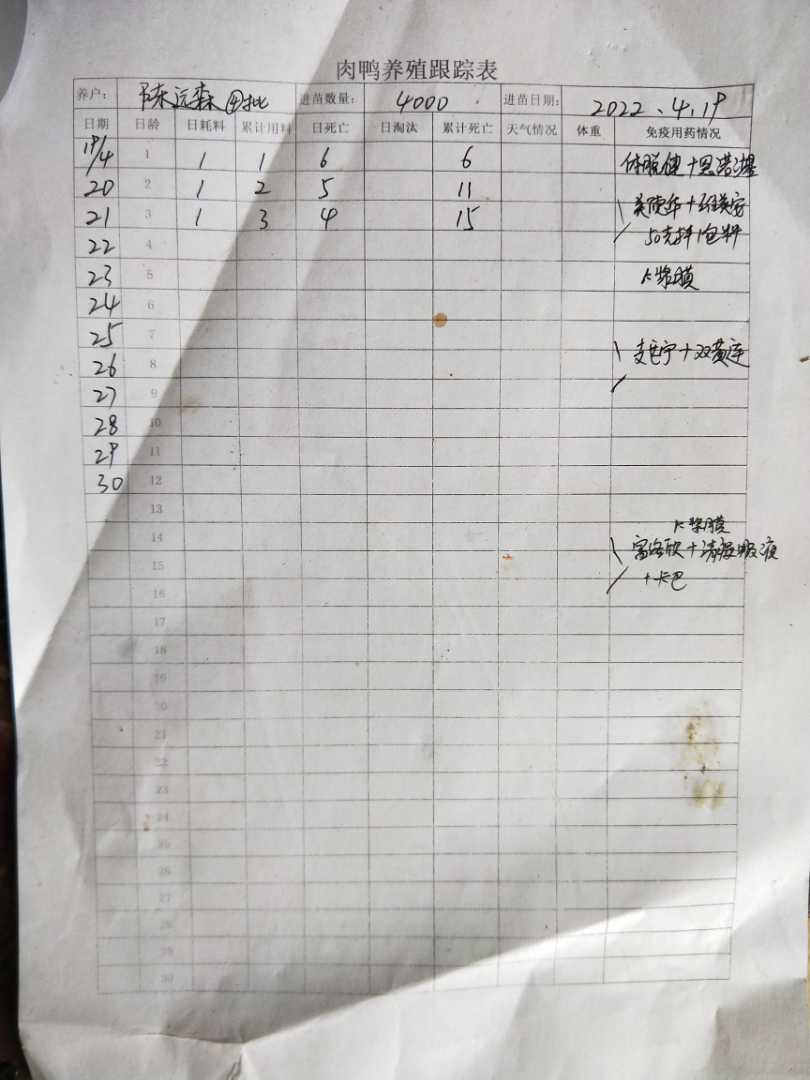 肉鸭养殖跟踪表
养户: 陈远森 ④批 进苗数量: 4000 进苗日期: 2022.4.19
日期 日龄 日耗料 累计用料 日死亡 日淘汰 累计死亡 天气情况 体重 免疫用药情况
19/4 1 1 1 6 6
20 2 1 2 5 11
21 3 1 3 4 15
50克拌1包料
22 4
23 5 浆膜
24 6
25 7
26 8 +双黄连
27 9
28 10
29 11
30 12
13
浆膜
14
15
+卡巴
16
17
18
19
20
21
22
23
24
25
26
27
28
29
30